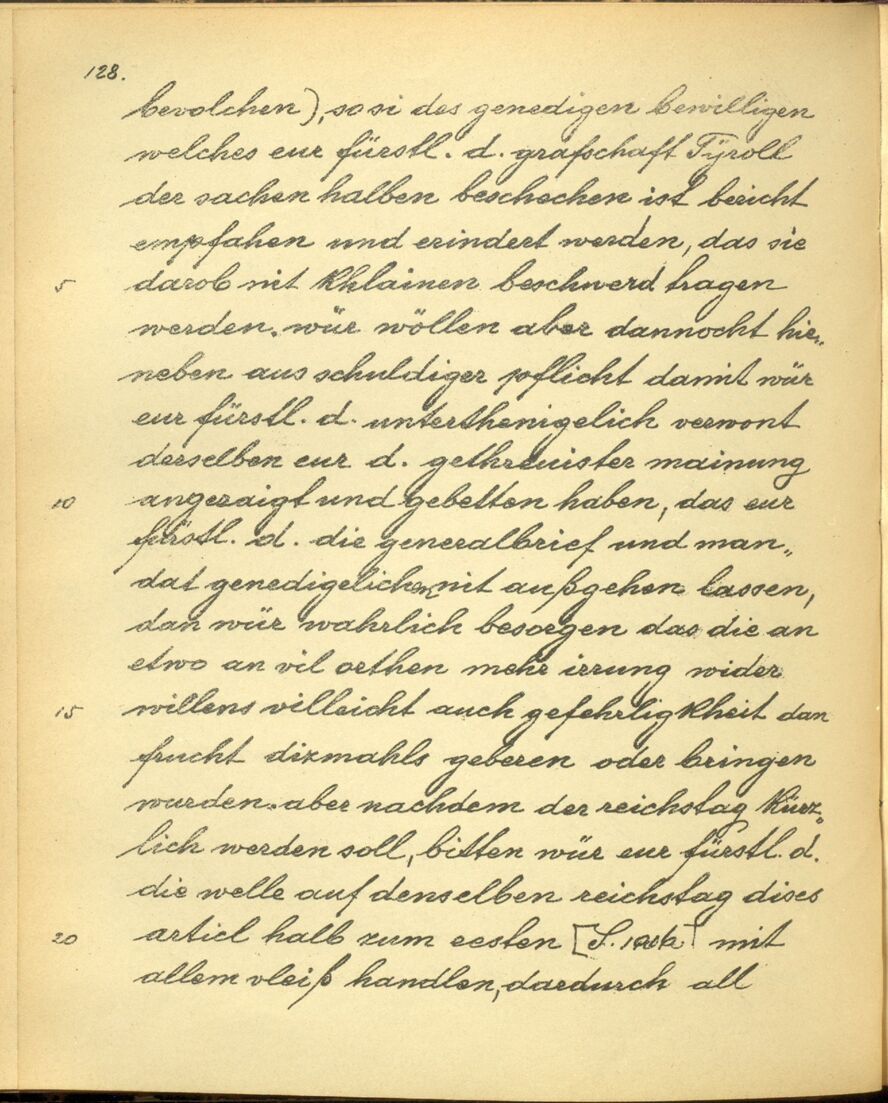 128.
bevolchen), so si des genedigen bewilligen
welches eur fürstl. d. grafschaft Tÿroll
der sachen halben beschechen ist bericht
empfahen und erindert werden, das sie
5 darob nit khlainen beschwerd tragen
werden. wür wöllen aber dannocht hie„
neben aus schuldiger pflicht damit wür
eur fürstl. d. unterthenigelich verwont
derselben eur d. gethreuister mainung
10 angezaigt und gebetten haben, das eur
fürstl. d. die generalbrief und man„
dat genedigelichen nit außgehen lassen,
dan wür wahrlich besorgen das die an
etwo an vil orthen mehr irrung wider
15 willens villeicht auch gefehrligkheit dan
frucht dizmahls geberen oder bringen
wurden. aber nachdem der reichstag kürz„
lich werden soll, bitten wür eur fürstl. d.
die welle auf denselben reichstag dises
20 articl halb zum ersten [S. ] mit
allem vleiß handlen, dardurch all